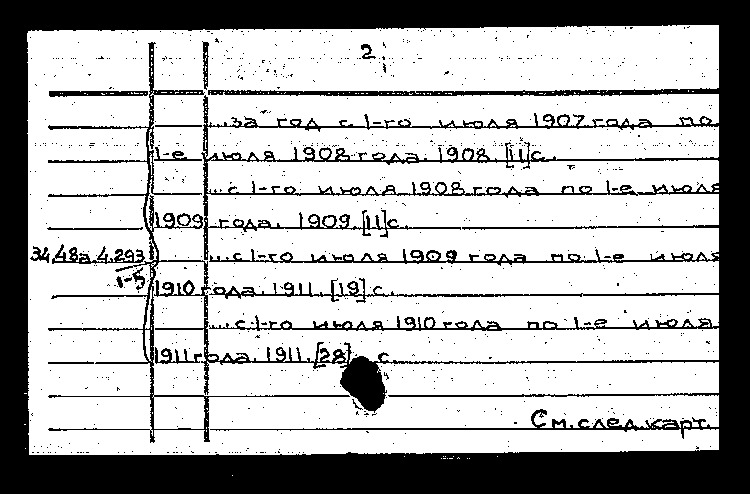 2
...за год с 1-го июля 1907 года по
1-е июля 1908 года. 1908. [11] с.
...с 1-го июля 1908 года по 1-е июля
1909 года. 1909. [11] с.
34.48а.4.293
...с 1-го июля 1909 года по 1-е июля
1-5
1910 года. 1911. [19] с.
...с 1-го июля 1910 года по 1-е июля
1911 года. 1911. [28] с.
См. след. карт.